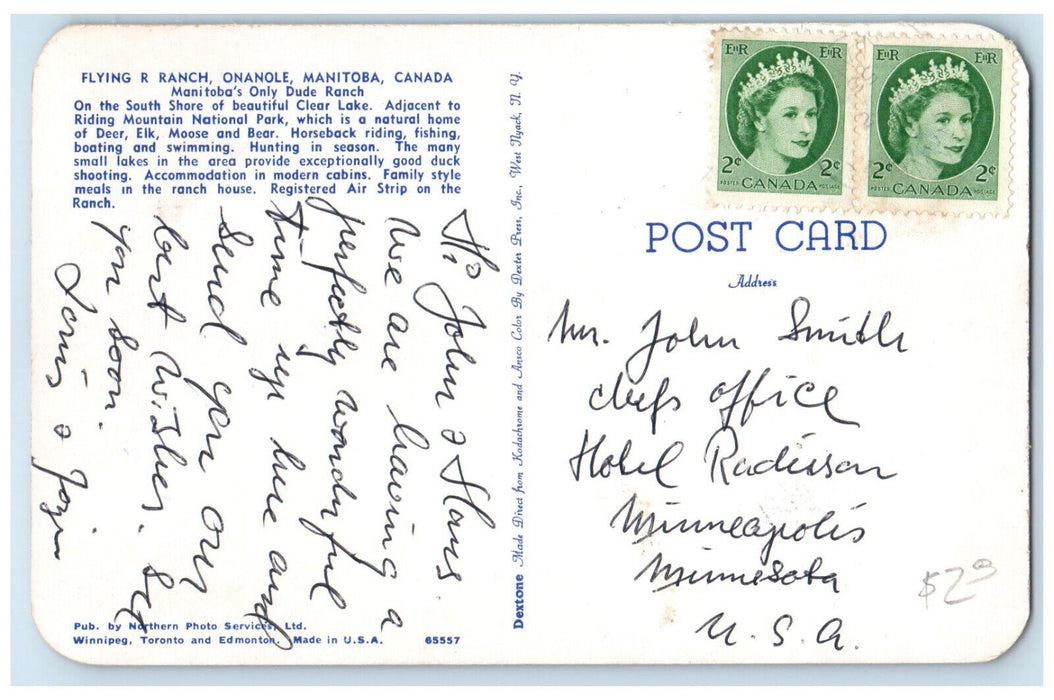 FLYING R RANCH, ONANOLE, MANITOBA, CANADA
Manitoba's Only Dude Ranch
On the South Shore of beautiful Clear Lake. Adjacent to
Riding Mountain National Park, which is a natural home
of Deer, Elk, Moose and Bear. Horseback riding, fishing,
boating and swimming. Hunting in season. The many
small lakes in the area provide exceptionally good duck
shooting. Accommodation in modern cabins. Family style
meals in the ranch house. Registered Air Strip on the
Ranch.
Hi John & Hans.
We are having a
perfectly wonderful
time up here and
send you our
best wishes. See
you soon.
&
Pub. by Northern Photo Services, Ltd.
Winnipeg, Toronto and Edmonton. Made in U.S.A. 65557
Dextone Made Direct from Kodachrome and Ansco Color By Dexter Press, Inc., West Nyack, N. Y.
EIIR EIIR
2¢ 2¢
POSTES CANADA POSTAGE
EIIR EIIR
2¢ 2¢
POSTES CANADA POSTAGE
POST CARD
Address
Mr. John Smith
chefs office
Hotel Radisson
Minneapolis
Minnesota
U. S. A.
$2.00